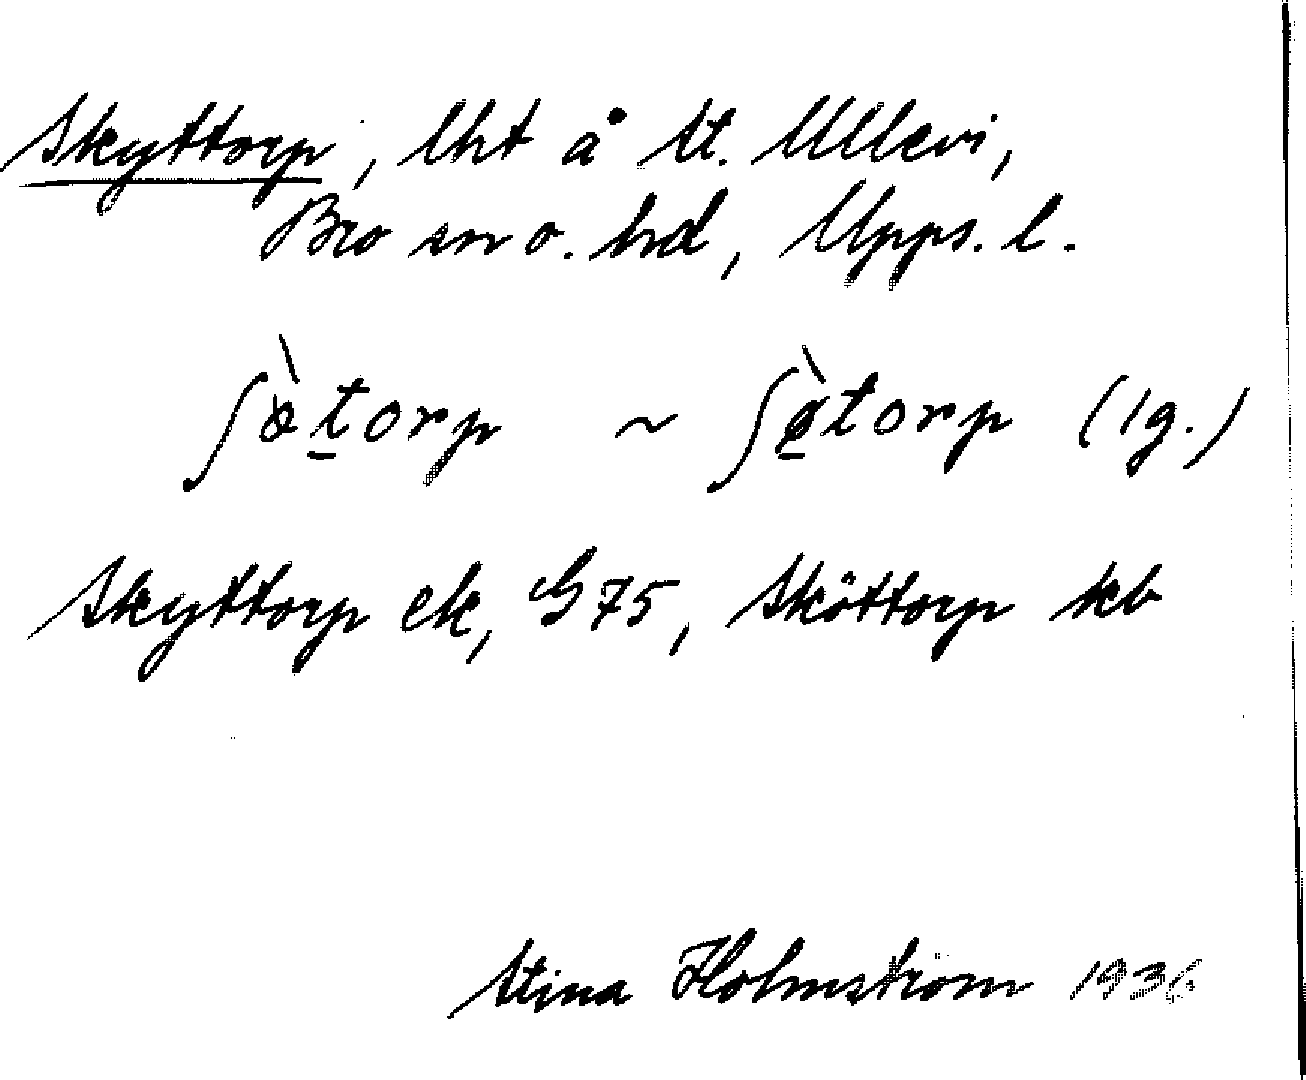 Skyttorp, lht å St. Ullevi,
Bro sn o. hd, Upps. l.
ʃø̀t̠orp ~ ʃø̠̀torp (lg.)
Skyttorp ek, G 75, Sköttorp kb
Stina Holmström 1936